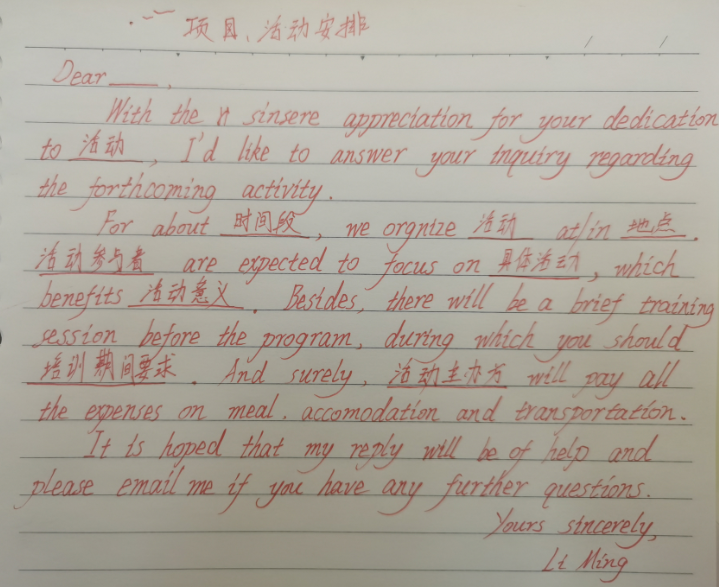 项目、活动安排
Dear ____,
With the sinsere appreciation for your dedication
to 活动, I'd like to answer your inquiry regarding
the forthcoming activity.
For about 时间段, we orgnize 活动 at/in 地点.
活动参与者 are expected to focus on 具体活动, which
benefits 活动意义. Besides, there will be a brief training
session before the program, during which you should
培训期间要求. And surely, 活动主办方 will pay all
the expenses on meal, accomodation and transportation.
It is hoped that my reply will be of help and
please email me if you have any further questions.
Yours sincerely,
Li Ming